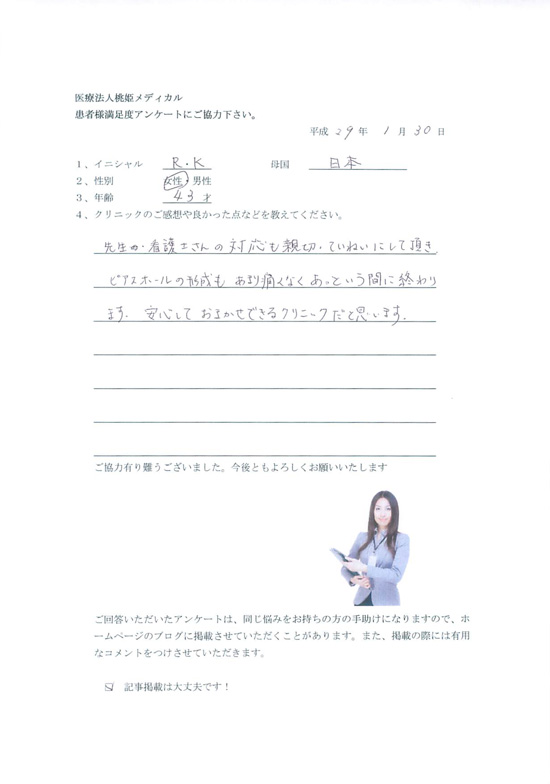 医療法人桃姫メディカル
患者様満足度アンケートにご協力下さい。
平成 29 年 1 月 30 日
1、イニシャル R・K 母国 日本
2、性別 女性・男性
3、年齢 43才
4、クリニックのご感想や良かった点などを教えてください。
先生や・看護士さんの対応も親切・ていねいにして頂き
ピアスホールの形成も あまり痛くなく あっという間に終わり
ます。 安心して おまかせできるクリニックだと思います。
ご協力有り難うございました。今後ともよろしくお願いいたします
ご回答いただいたアンケートは、同じ悩みをお持ちの方の手助けになりますので、ホ
ームページのブログに掲載させていただくことがあります。また、掲載の際には有用
なコメントをつけさせていただきます。
☑ 記事掲載は大丈夫です！